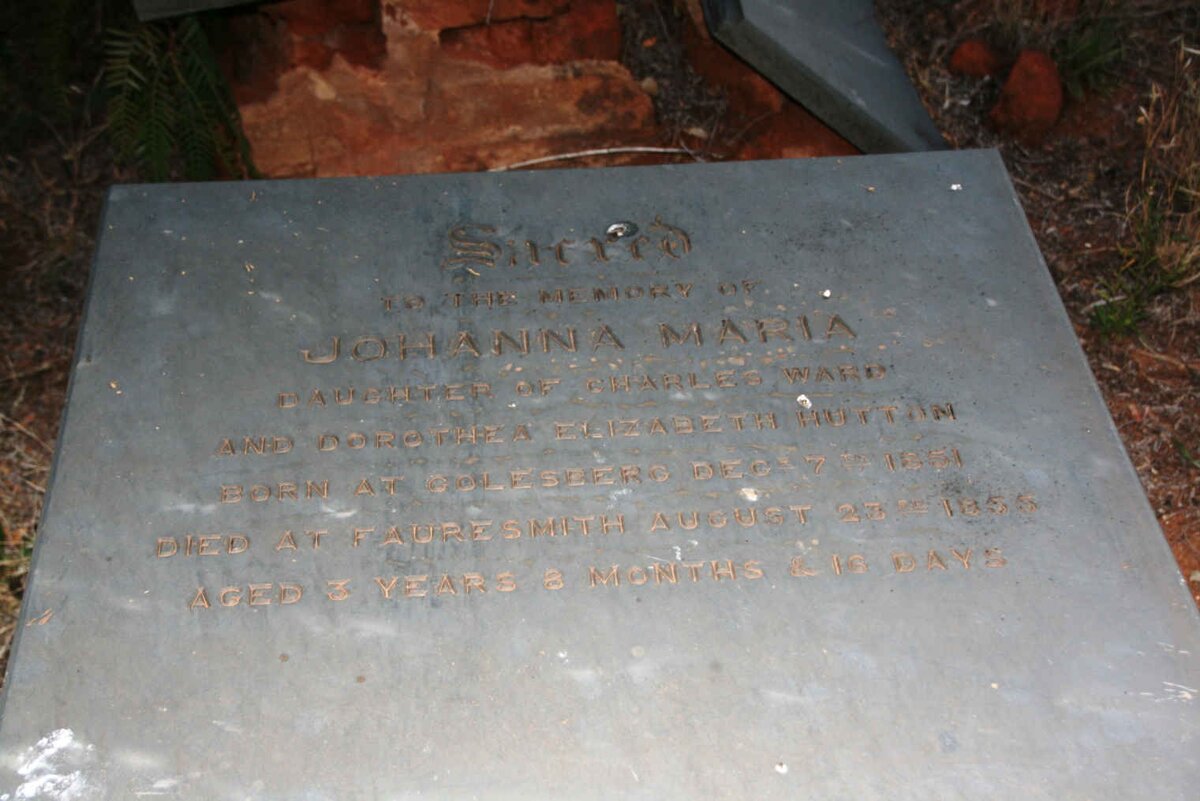 Sacred
TO THE MEMORY OF
JOHANNA MARIA
DAUGHTER OF CHARLES WARD
AND DOROTHEA ELIZABETH HUTTON
BORN AT COLESBERG DECR 7TH 1851
DIED AT FAURESMITH AUGUST 23RD 1855
AGED 3 YEARS 8 MONTHS & 16 DAYS